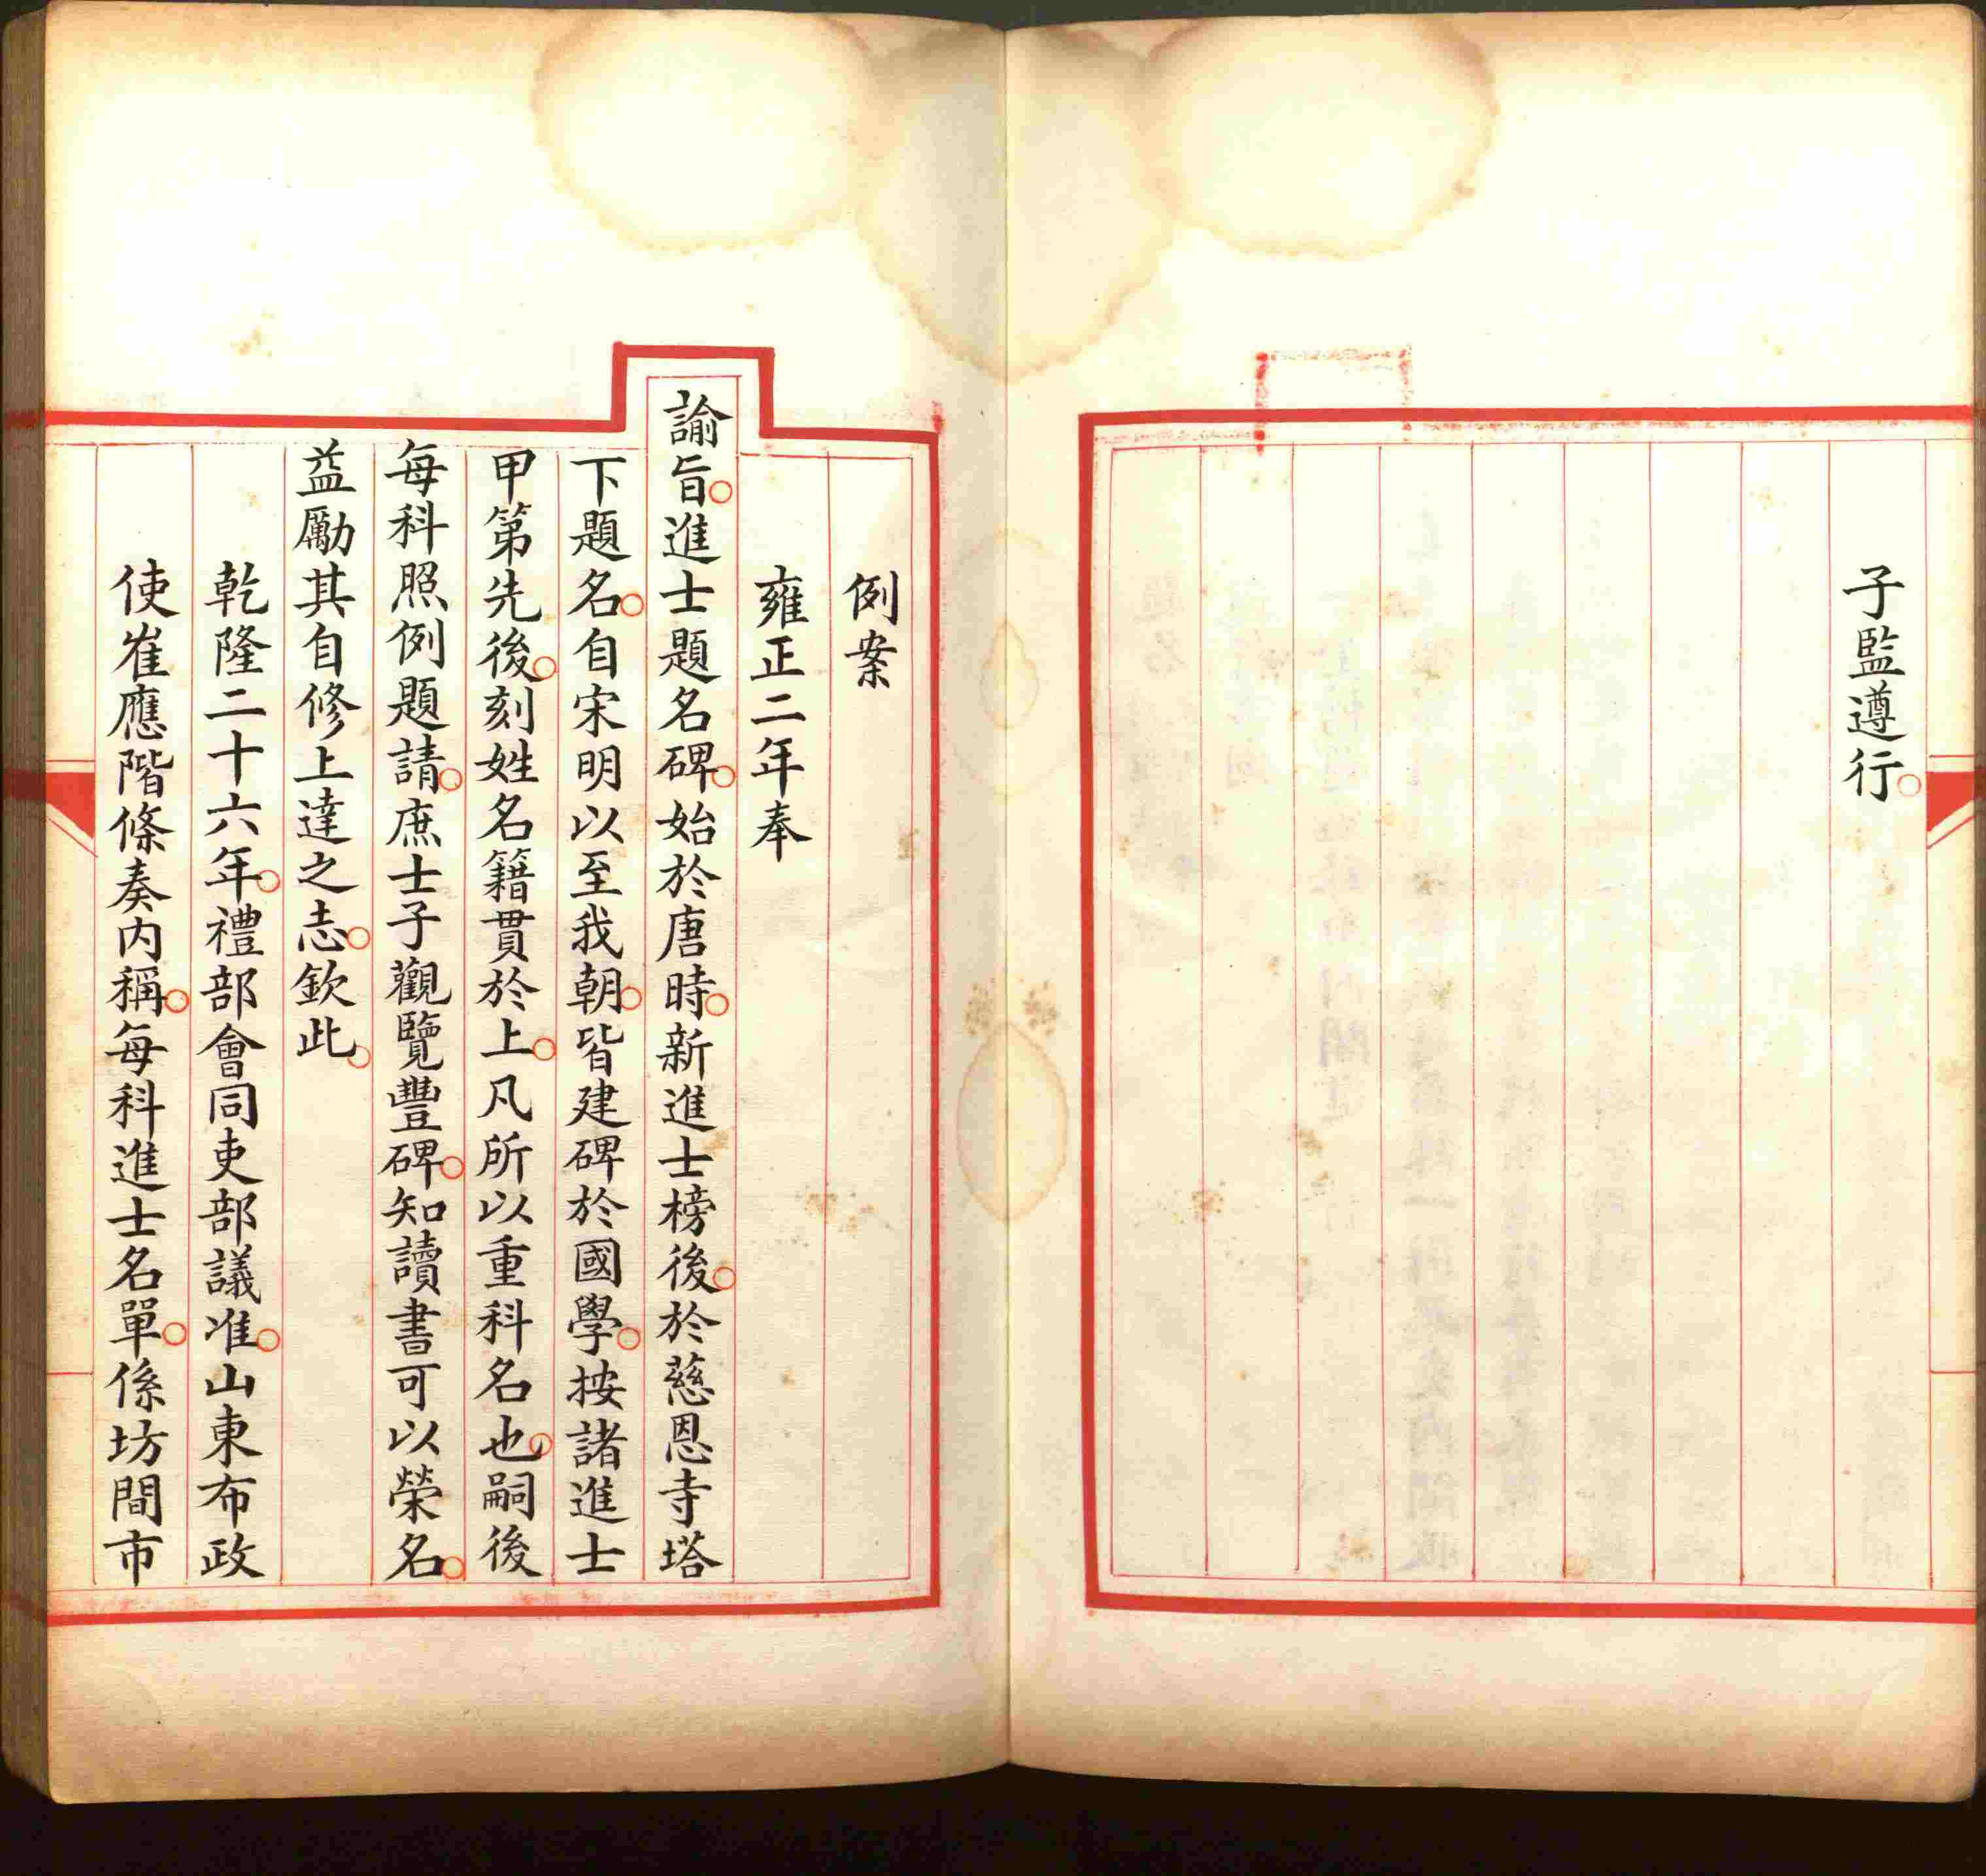 子監遵行○
例案
雍正二年奉
諭旨○進士題名碑○始於唐時○新進士榜後○於慈恩寺塔
下題名○自宋明以至我朝○皆建碑於國學○按諸進士
甲第先後○刻姓名籍貫於上○凡所以重科名也○嗣後
每科照例題請○庶士子觀覽豐碑○知讀書可以榮名○
益勵其自修上達之志○欽此○
乾隆二十六年○禮部會同吏部議准○山東布政
使崔應階條奏內稱○每科進士名單○係坊間市